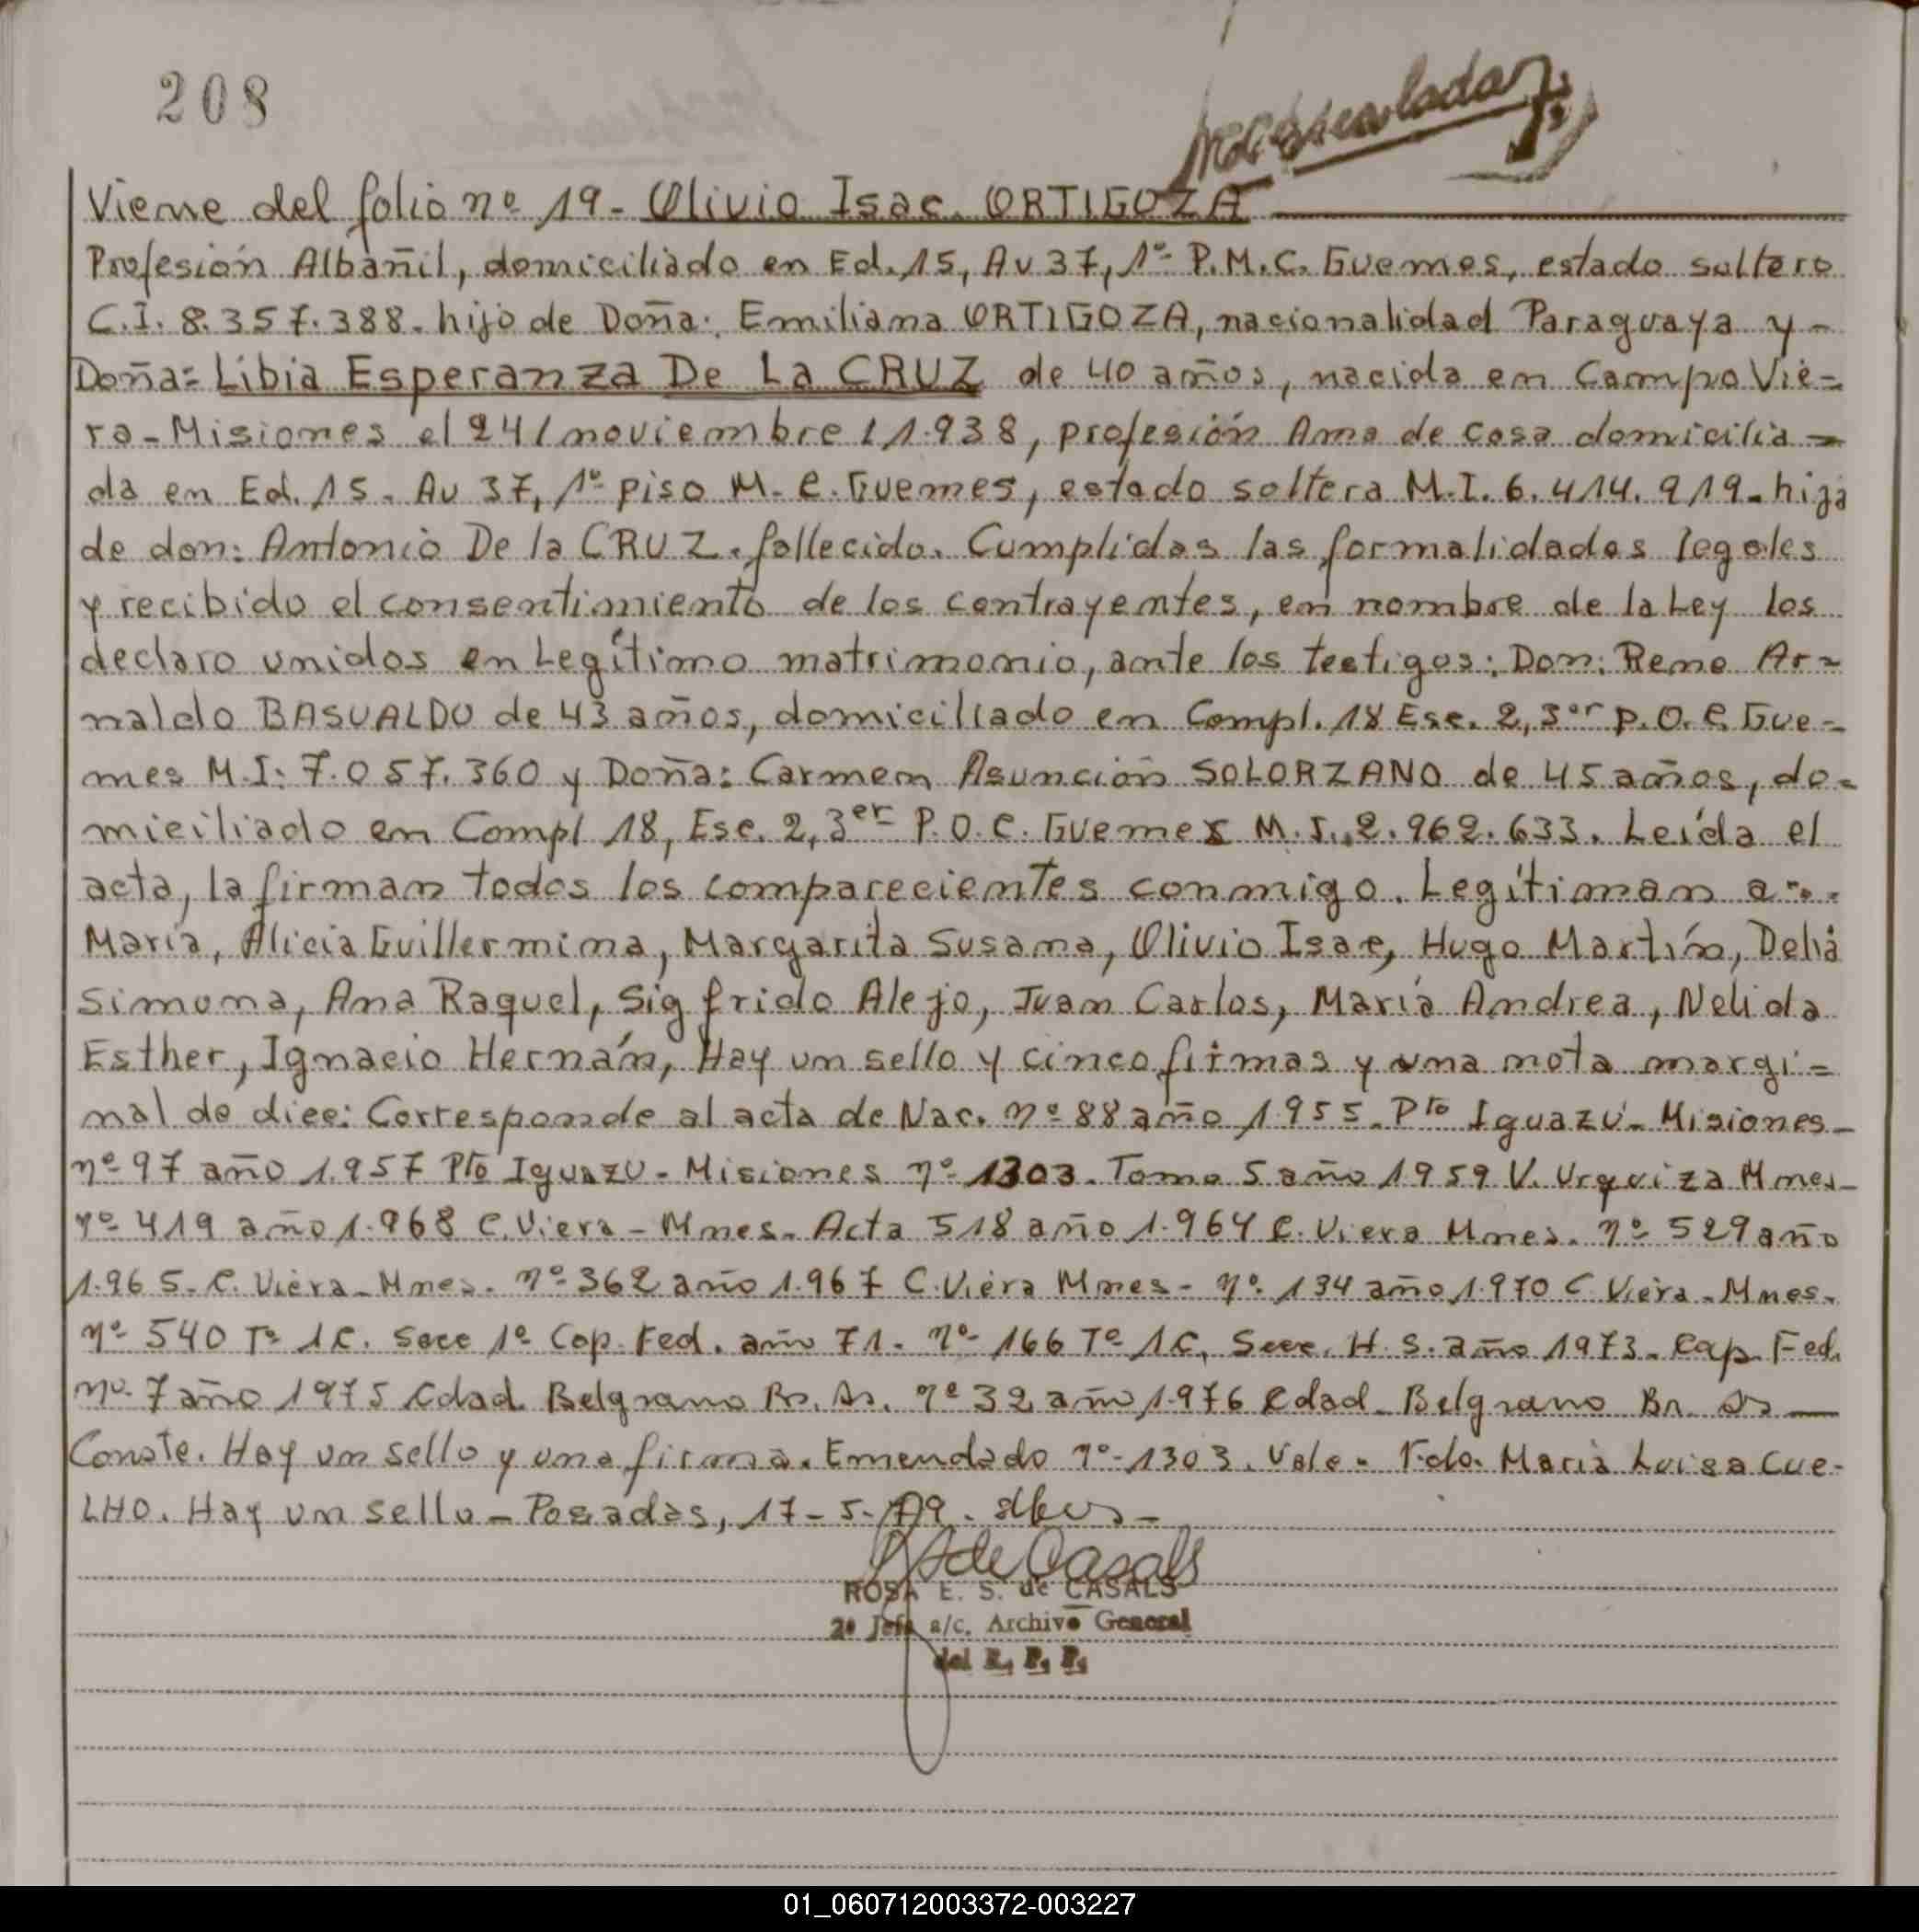 208
Viene del folio nº 19- Olivio Isac. ORTIGOZA
Profesión Albañil, domiciliado en Ed. 15, Av 37, 1º P.M.C. Guemes, estado soltero
C.I. 8.357.388. hijo de Doña: Emiliana ORTIGOZA, nacionalidad Paraguaya y-
Doña: Libia Esperanza De La CRUZ de 40 años, nacida en Campo Vie=
ra-Misiones el 24/noviembre/1.938, profesión Ama de casa domicilia=
da en Ed. 15. Av 37, 1º piso M.C. Guemes, estado soltera M.I. 6.414.919- hija
de don: Antonio De la CRUZ. fallecido. Cumplidas las formalidades legales
y recibido el consentimiento de los contrayentes, en nombre de la Ley los
declaro unidos en Legítimo matrimonio, ante los testigos: Don: Rene Ar=
naldo BASUALDO de 43 años, domiciliado en Compl. 18 Esc. 2, 3er P.O.C Gue=
mes M.I: 7.057.360 y Doña: Carmen Asunción SOLORZANO de 45 años, do=
miciliado en Compl 18, Esc. 2, 3er P.O.C. Guemes M.I. 2.962.633. Leída el
acta, la firman todos los comparecientes conmigo. Legitiman a
María, Alicia Guillermina, Margarita Susana, Olivio Isac, Hugo Martín, Delia
Simona, Ana Raquel, Sigfrido Alejo, Juan Carlos, María Andrea, Nelida
Esther, Ignacio Hernán, Hay un sello y cinco firmas y una nota margi=
nal de dice: Corresponde al acta de Nac. nº 88 año 1.955. Pto Iguazú- Misiones-
nº 97 año 1.957 Pto Iguazu- Misiones nº 1303. Tomo 5 año 1959 V. Urquiza Mnes-
nº 419 año 1.968 C. Viera- Mnes. Acta 518 año 1.964 C. Viera Mnes. nº 529 año
1.965. C. Viera- Mnes. nº 362 año 1.967 C. Viera Mnes- nº 134 año 1.970 C Viera- Mnes.
nº 540 Tº 1C. Secc 1º Cap. Fed. año 71. nº 166 Tº 1C, Secc. H. S. año 1973. Cap. Fed.
nº 7 año 1975 Cdad. Belgrano Bs. As. nº 32 año 1.976 Cdad. Belgrano Bs. As
Conste. Hay un sello y una firma. Emendado nº 1303. Vale. Fdo. María Luisa Cue-
LHO. Hay un sello- Posadas, 17-5-79.
ROSA E. S. de CASALS
2º Jefe a/c. Archivo General
del R. P. P.
01_060712003372-003227